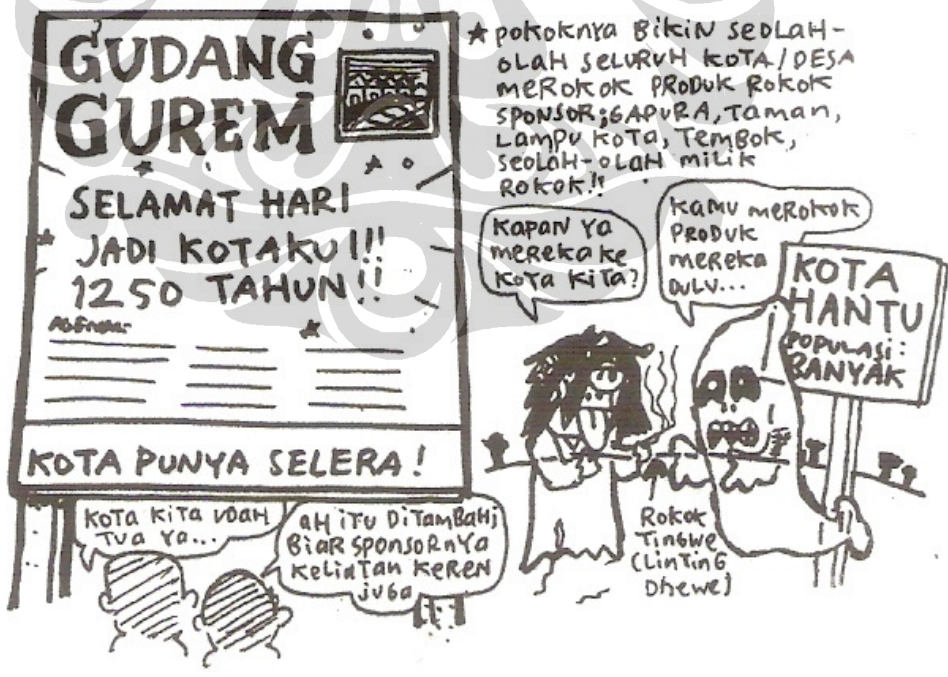 GUDANG
GUREM
SELAMAT HARI
JADI KOTAKU!!!
1250 TAHUN!!
AGENDA:
KOTA PUNYA SELERA!
KOTA KITA UDAH
TUA YA...
AH ITU DITAMBAH;
BIAR SPONSORNYA
KELIATAN KEREN
JUGA
* POKOKNYA BIKIN SEOLAH-
OLAH SELURUH KOTA/DESA
MEROKOK PRODUK ROKOK
SPONSOR; GAPURA, TAMAN,
LAMPU KOTA, TEMBOK,
SEOLAH-OLAH MILIK
ROKOK!!
KAPAN YA
MEREKA KE
KOTA KITA?
KAMU MEROKOK
PRODUK
MEREKA
DULU...
KOTA
HANTU
POPULASI:
BANYAK
ROKOK
TINGWE
(LINTING
DHEWE)